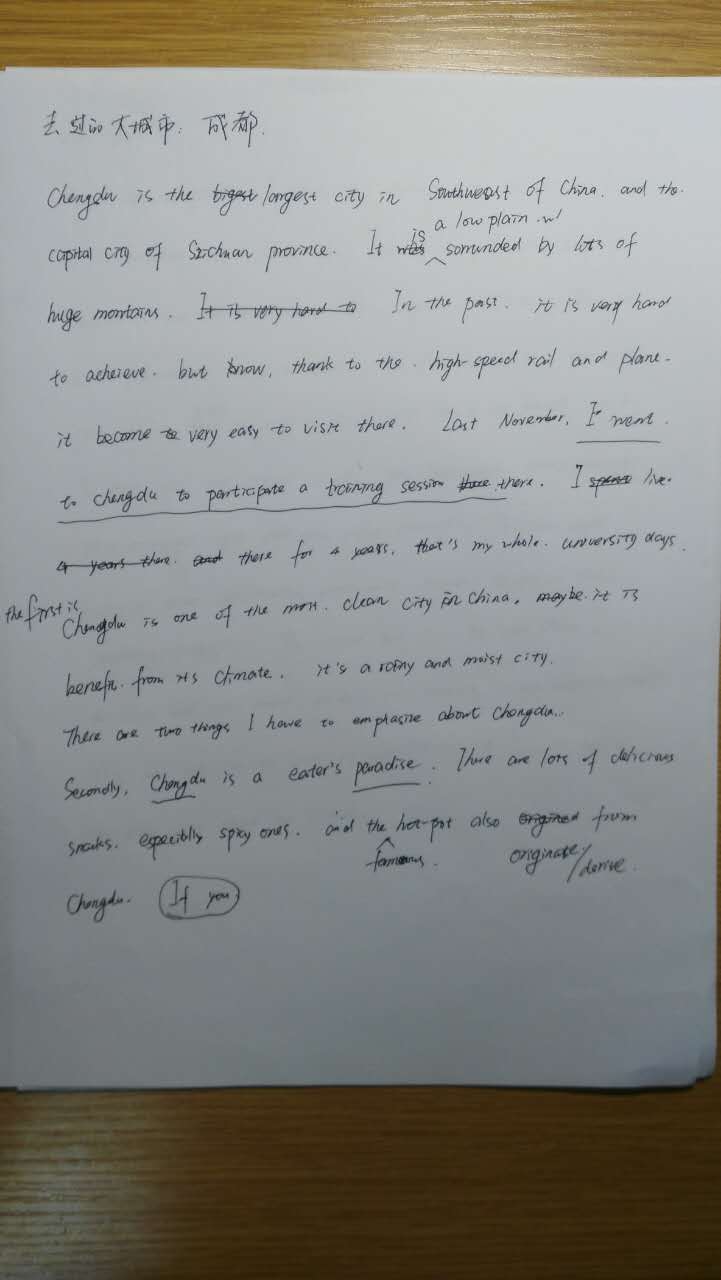 去过的大城市：成都.
Chengdu is the bigest largest city in Southwest of China. and the
is a low plain w/
capital city of Szichuan province. It was sorrunded by lots of
huge montains. It is very hard to In the past. it is very hard
to acheieve. but know, thank to the. high-speed rail and plane.
it become to very easy to visit there. Last November, I went
to chengdu to participate a training session there there. I spent live.
4 years there. and there for 4 years, that's my whole. university days.
the first is
Chengdu is one of the most. clean city in China, maybe. it is
benefit. from its climate. it's a rainy and moist city.
There are two things I have to emphasize about Chengdu..
Secondly, Chengdu is a eater's paradise. There are lots of delicious
snacks. especiblly spicy ones. and the hot-pot also origined from
famous. originate/derive.
Chengdu. If you